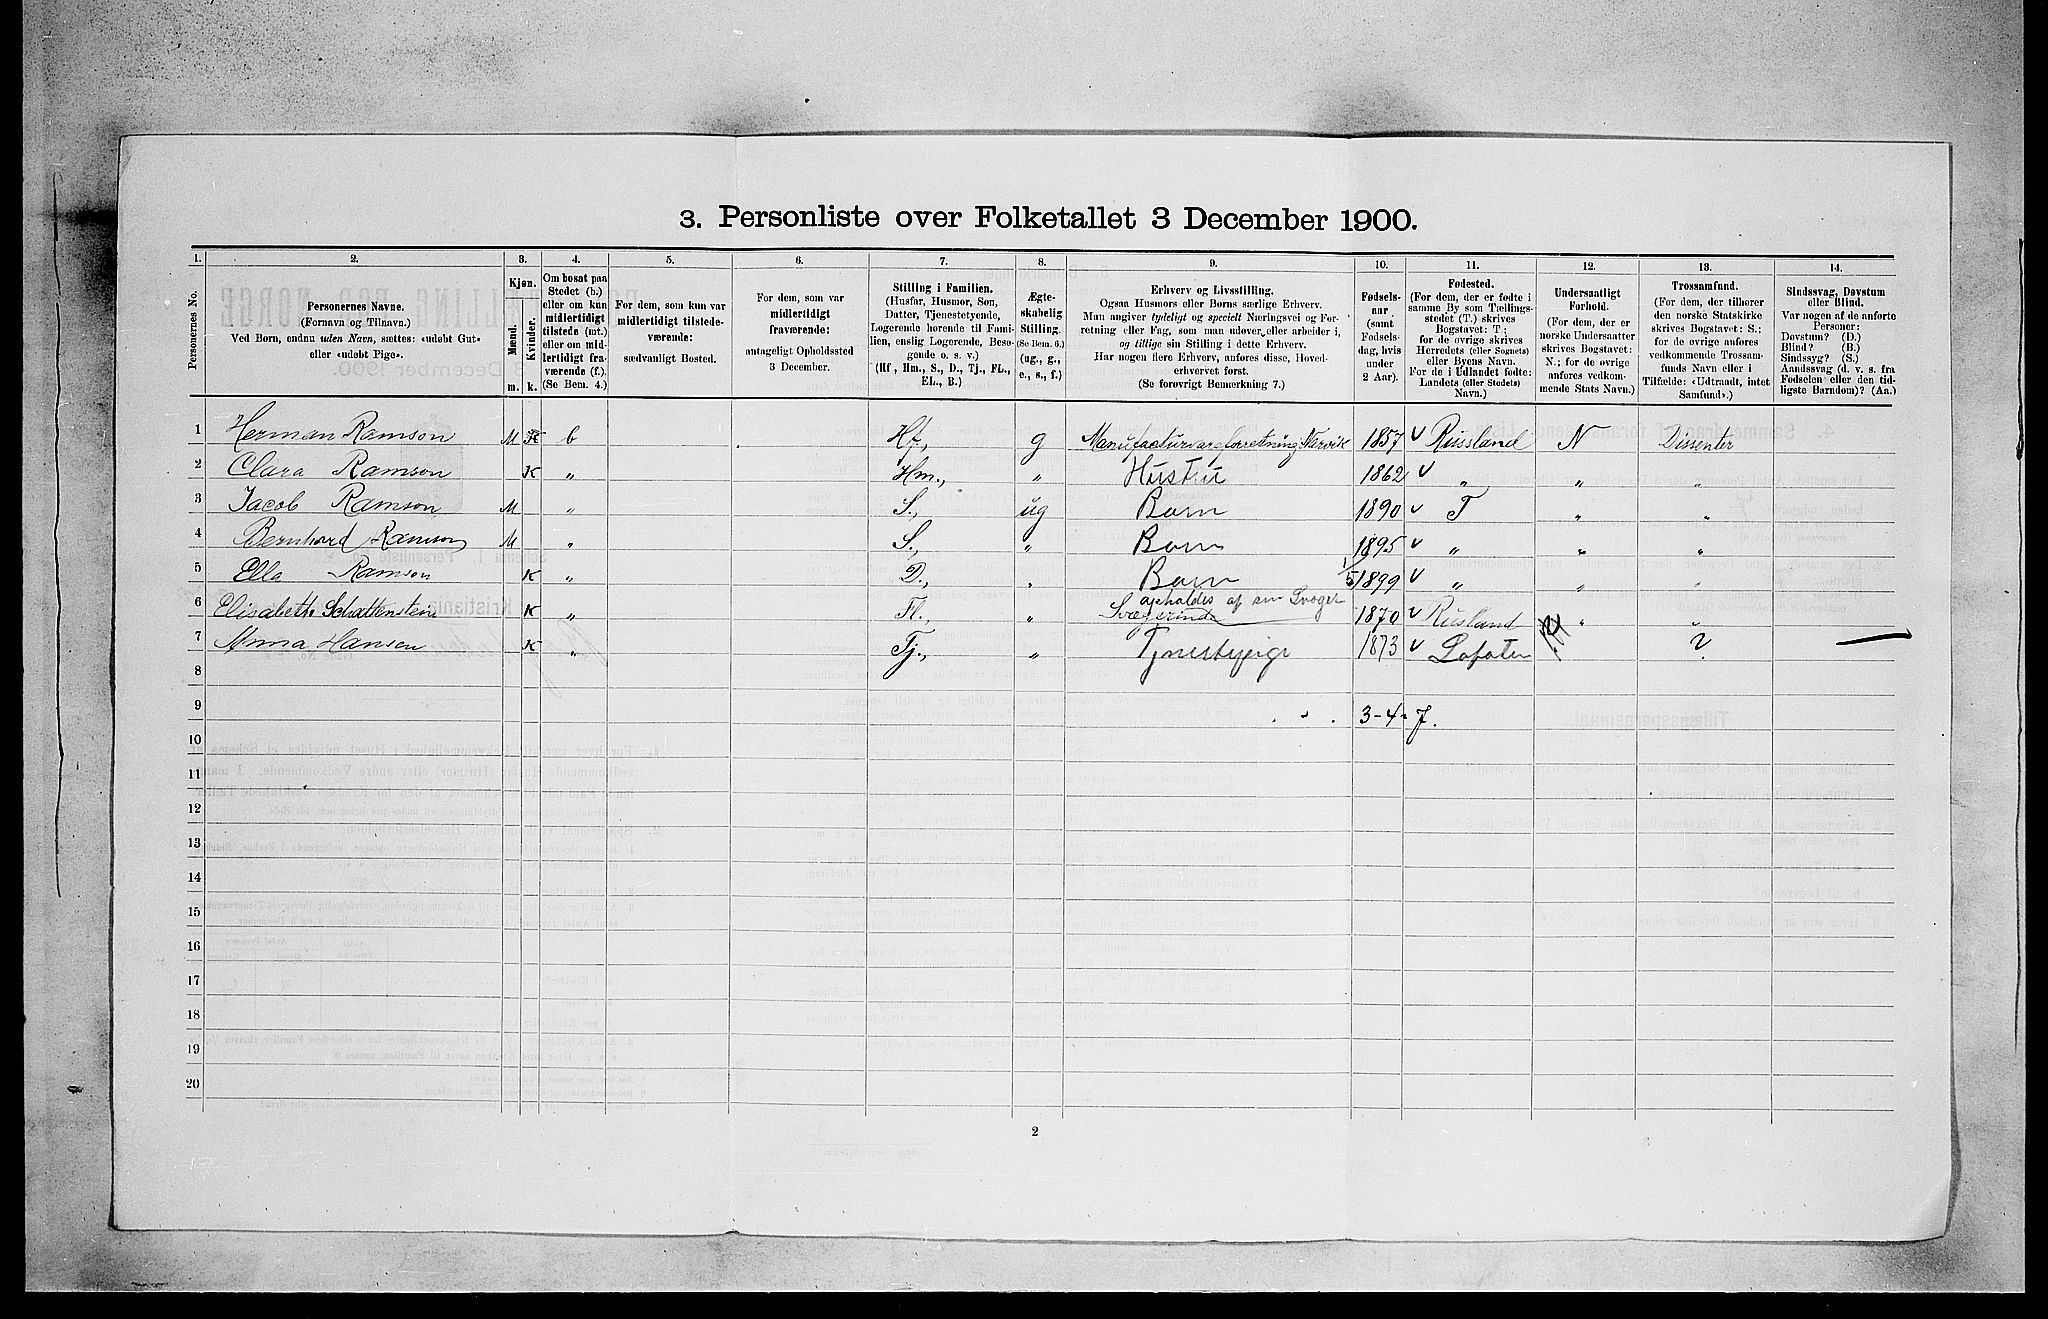 3. Personliste over Folketallet 3 December 1900.
1. 2. 3. 4. 5. 6. 7. 8. 9. 10. 11. 12. 13. 14.
Personernes No.
Personernes Navne.
(Fornavn og Tilnavn.)
Ved Børn, endnu uden Navn, sættes: «udøbt Gut»
eller «udøbt Pige».
Kjøn.
Mænd.
Kvinder.
m. k.
Om bosat paa
Stedet (b.)
eller om kun
midlertidigt
tilstede (mt.)
eller om mid-
lertidigt fra-
værende (f.).
(Se Bem. 4.)
For dem, som kun var
midlertidigt tilstede-
værende:
sædvanligt Bosted.
For dem, som var
midlertidigt
fraværende:
antageligt Opholdssted
3 December.
Stilling i Familien.
(Husfar, Husmor, Søn,
Datter, Tjenestetyende,
Logerende hørende til Fami-
lien, enslig Logerende, Besø-
gende o. s. v.)
(Hf, Hm., S., D., Tj., FL.,
EL., B.)
Ægte-
skabelig
Stilling.
(Se Bem. 6.)
(ug., g.,
e., s., f.)
Erhverv og Livsstilling.
Ogsaa Husmors eller Børns særlige Erhverv.
Man angiver tydeligt og specielt Næringsvei og For-
retning eller Fag, som man udøver eller arbeider i,
og tillige sin Stilling i dette Erhverv.
Har nogen flere Erhverv, anføres disse, Hoved-
erhvervet først.
(Se forøvrigt Bemerkning 7.)
Fødsels-
aar.
(samt
Fødsels-
dag, hvis
under
2 Aar).
Fødested.
(For dem, der er fødte i
samme By som Tællings-
stedet (T.) skrives
Bogstavet: T.;
for de øvrige skrives
Herredets (eller Sognets)
eller Byens Navn.
For de i Udlandet fødte:
Landets (eller Stedets)
Navn.)
Undersaatligt
Forhold.
(For dem, der er
norske Undersaatter
skrives Bogstavet:
N.; for de øvrige
anføres vedkom-
mende Stats Navn.)
Trossamfund.
(For dem, der tilhører
den norske Statskirke
skrives Bogstavet: S.;
for de øvrige anføres
vedkommende Trossam-
funds Navn eller i
Tilfælde: «Udtraadt, intet
Samfund».)
Sindssvag, Døvstum
eller Blind.
Var nogen af de anførte
Personer:
Døvstum? (D.)
Blind? (B.)
Sindssyg? (S.)
Aandssvag (d. v. s. fra
Fødselen eller den tid-
ligste Barndom)? (Aa.)
1 Herman Ramson M K b Hf., g Manufacturvareforretning Narvik 1857 v Russland N Dissenter
2 Clara Ramson K " Hm., " Hustru 1862 v " " "
3 Jacob Ramson M " S., ug Barn 1890 v T " "
4 Bernhard Ramson M " S., " Barn 1895 v " " "
5 Ella Ramson K " D., " Barn 1/5 1899 v " " "
6 Elisabeth Schattenstein K " Fl., " Svægerinde opholdes af sin Svoger 1870 v Rusland " "
7 Anna Hansen K " Tj., " 1873 v Lofoten ?
8
9 3-4-7.
10
11
12
13
14
15
16
17
18
19
20
2